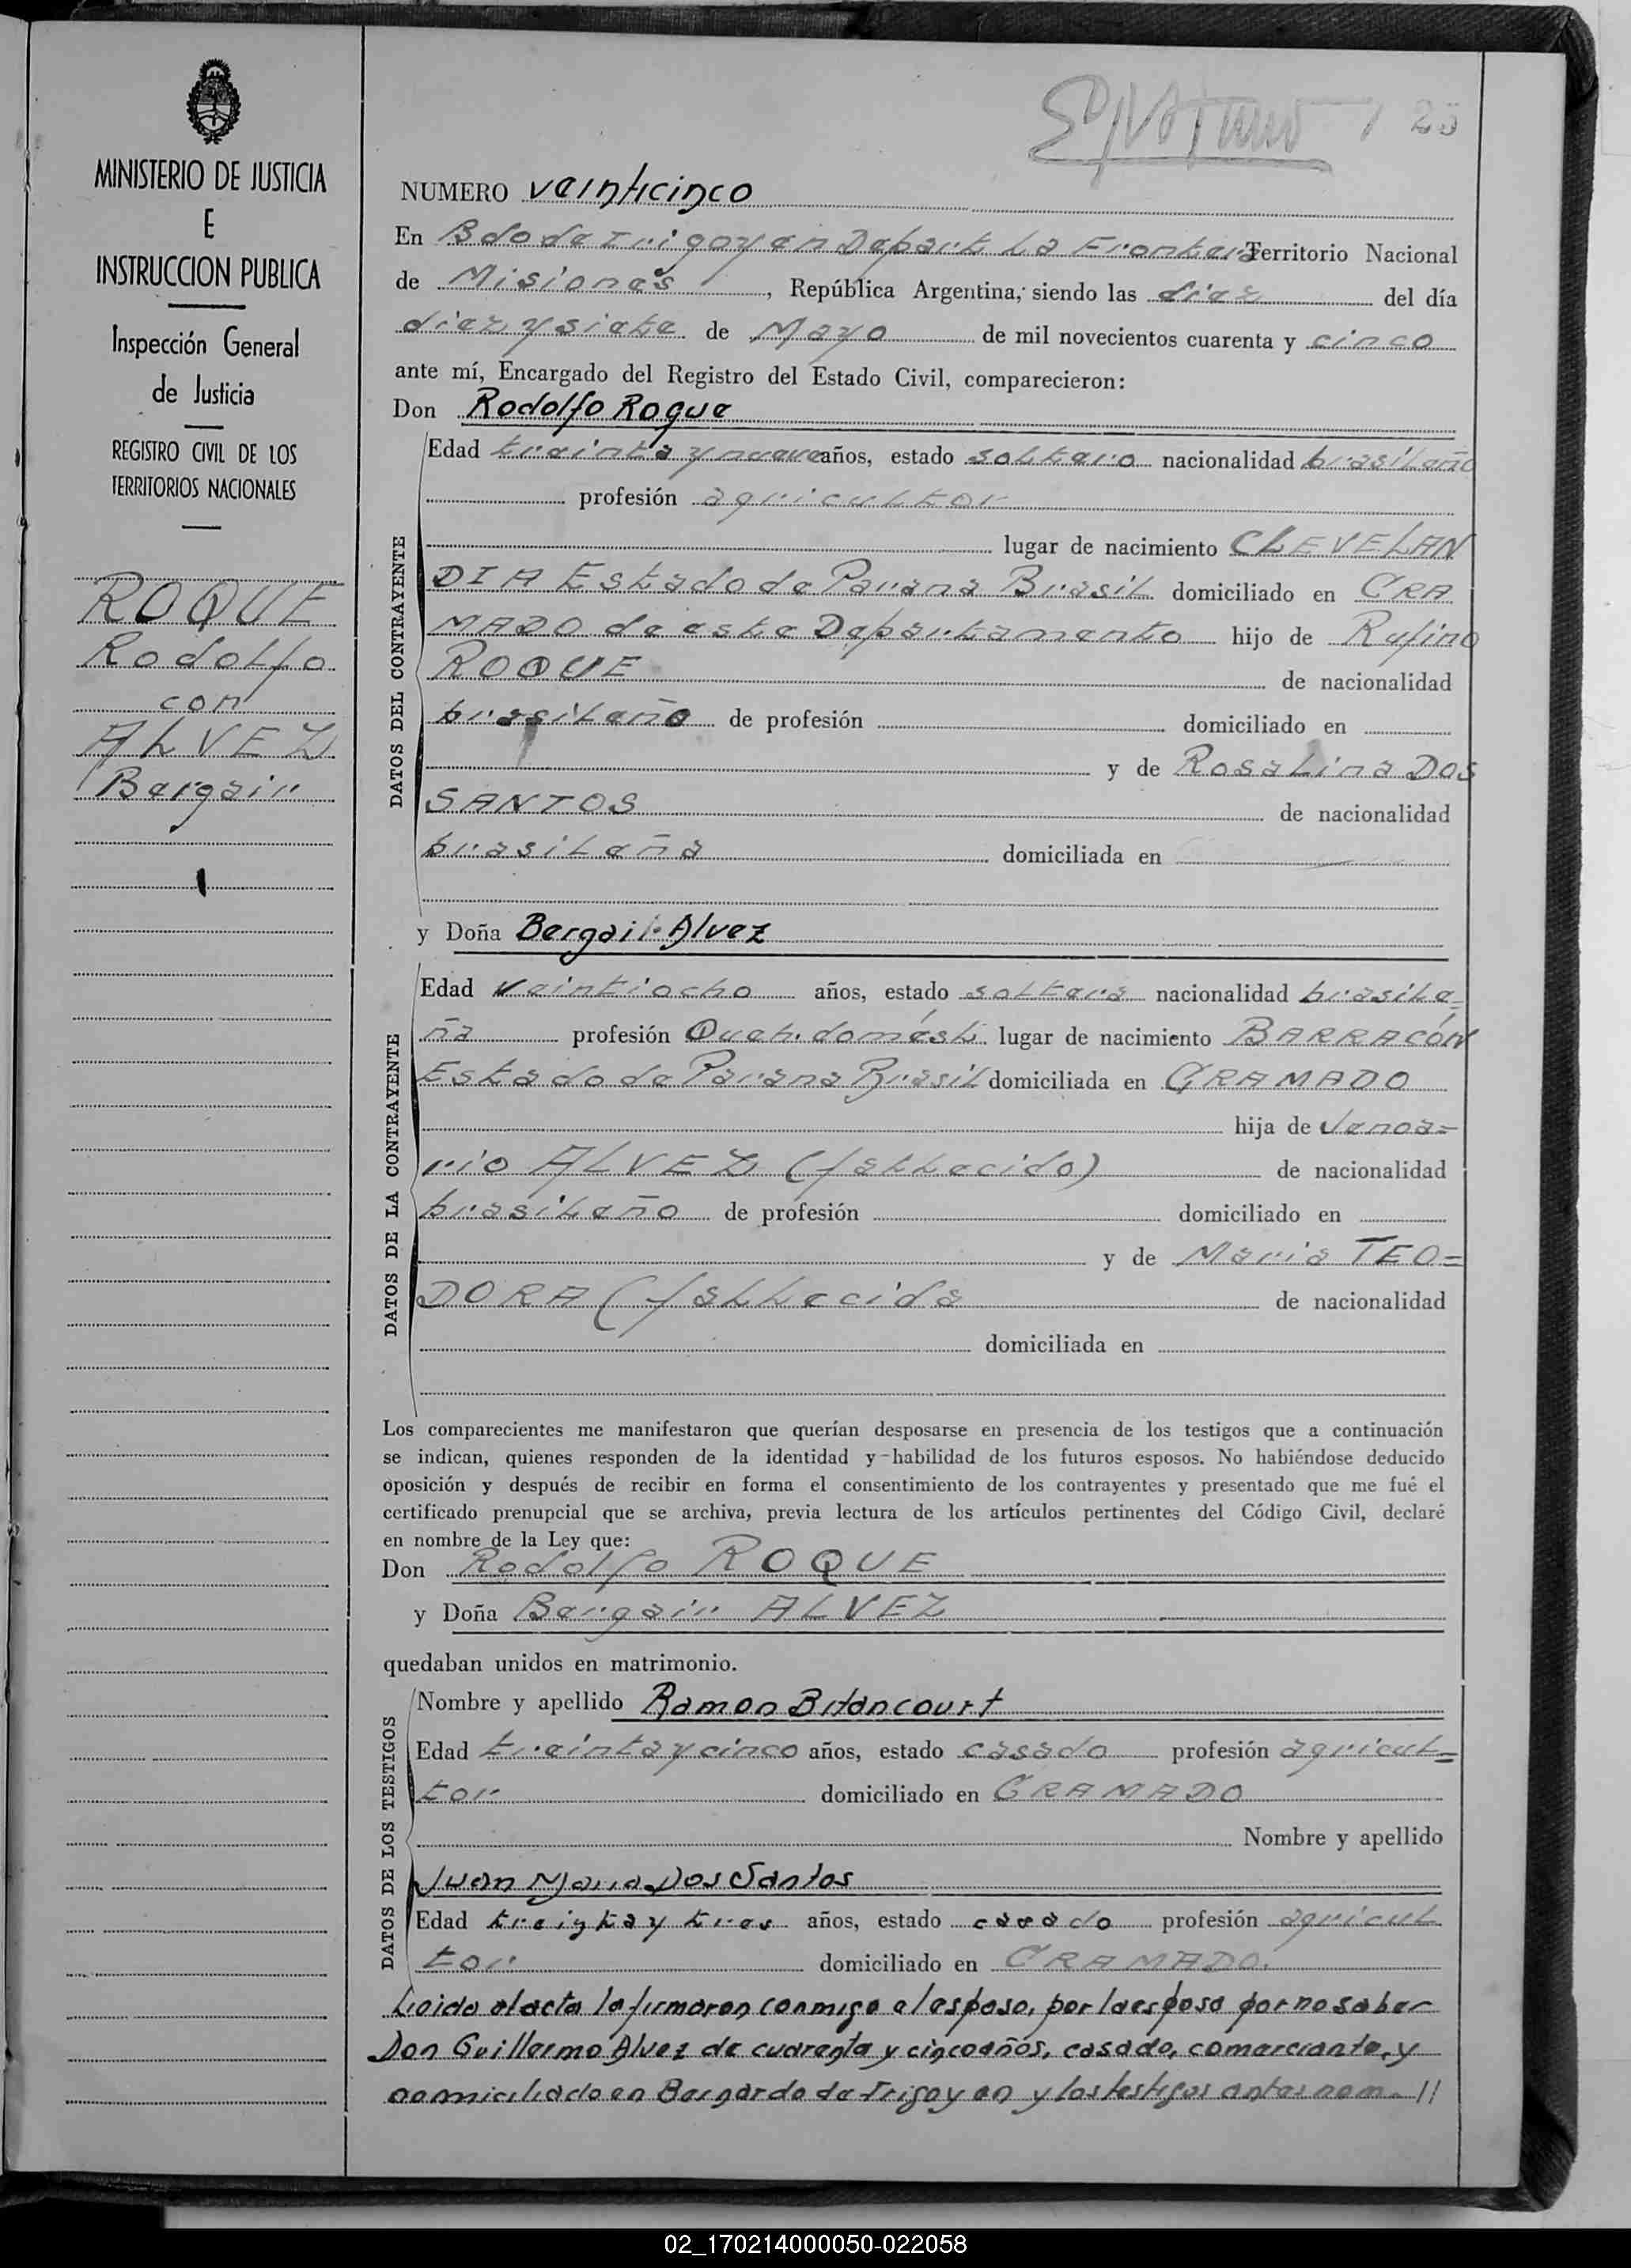 MINISTERIO DE JUSTICIA
E
INSTRUCCION PUBLICA
Inspección General
de Justicia
REGISTRO CIVIL DE LOS
TERRITORIOS NACIONALES
ROQUE
Rodolfo
con
ALVEZ
Bergair
25
NUMERO veinticinco
En Bdo de Irigoyen Depart. La Frontera Territorio Nacional
de Misiones, República Argentina, siendo las diez del día
diez y siete de Mayo de mil novecientos cuarenta y cinco
ante mí, Encargado del Registro del Estado Civil, comparecieron:
Don Rodolfo Roque
DATOS DEL CONTRAYENTE
Edad treinta y nueve años, estado soltero nacionalidad brasileño
profesión agricultor
lugar de nacimiento CLEVELAN
DIA Estado de Parana Brasil domiciliado en GRA
MADO de este Departamento hijo de Rufino
ROQUE de nacionalidad
brasileño de profesión domiciliado en
y de Rosalina DOS
SANTOS de nacionalidad
brasileña domiciliada en
y Doña Bergair Alvez
DATOS DE LA CONTRAYENTE
Edad veintiocho años, estado soltera nacionalidad brasile=
ña profesión Queh. domésti. lugar de nacimiento BARRACÓN
Estado de Parana Brasil domiciliada en GRAMADO
hija de Jenoa=
rio ALVEZ (fallecido) de nacionalidad
brasileño de profesión domiciliado en
y de Maria TEO=
DORA (fallecida de nacionalidad
domiciliada en
Los comparecientes me manifestaron que querían desposarse en presencia de los testigos que a continuación
se indican, quienes responden de la identidad y habilidad de los futuros esposos. No habiéndose deducido
oposición y después de recibir en forma el consentimiento de los contrayentes y presentado que me fué el
certificado prenupcial que se archiva, previa lectura de los artículos pertinentes del Código Civil, declaré
en nombre de la Ley que:
Don Rodolfo ROQUE
y Doña Bergair ALVEZ
quedaban unidos en matrimonio.
DATOS DE LOS TESTIGOS
Nombre y apellido Ramon Bitancourt
Edad treinta y cinco años, estado casado profesión agricul=
tor domiciliado en GRAMADO
Nombre y apellido
Juan Maria Dos Santos
Edad treinta y tres años, estado casado profesión agricul
tor domiciliado en GRAMADO.
Leida el acta la firmaron conmigo el esposo, por la esposa por no saber
Don Guillermo Alvez de cuarenta y cinco años, casado, comerciante, y
domiciliado en Bernardo de Irigoyen y los testigos antes nom- //
02_170214000050-022058